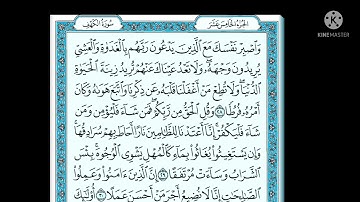 الجزء الخامس عشر
سورة الكهف
KINEMASTER
وَاصْبِرْ نَفْسَكَ مَعَ الَّذِينَ يَدْعُونَ رَبَّهُم بِالْغَدَوٰةِ وَالْعَشِيِّ
يُرِيدُونَ وَجْهَهُۥ وَلَا تَعْدُ عَيْنَاكَ عَنْهُمْ تُرِيدُ زِينَةَ الْحَيَوٰةِ
الدُّنْيَا وَلَا تُطِعْ مَنْ أَغْفَلْنَا قَلْبَهُۥ عَن ذِكْرِنَا وَاتَّبَعَ هَوَىٰهُ وَكَانَ
أَمْرُهُۥ فُرُطًا ٢٨ وَقُلِ الْحَقُّ مِن رَّبِّكُمْ فَمَن شَاءَ فَلْيُؤْمِن وَمَن
شَاءَ فَلْيَكْفُرْ إِنَّا أَعْتَدْنَا لِلظَّالِمِينَ نَارًا أَحَاطَ بِهِمْ سُرَادِقُهَا
وَإِن يَسْتَغِيثُوا يُغَاثُوا بِمَاءٍ كَالْمُهْلِ يَشْوِي الْوُجُوهَ بِئْسَ
الشَّرَابُ وَسَاءَتْ مُرْتَفَقًا ٢٩ إِنَّ الَّذِينَ ءَامَنُوا وَعَمِلُوا
الصَّالِحَاتِ إِنَّا لَا نُضِيعُ أَجْرَ مَنْ أَحْسَنَ عَمَلًا ٣٠ أُولَٰئِكَ